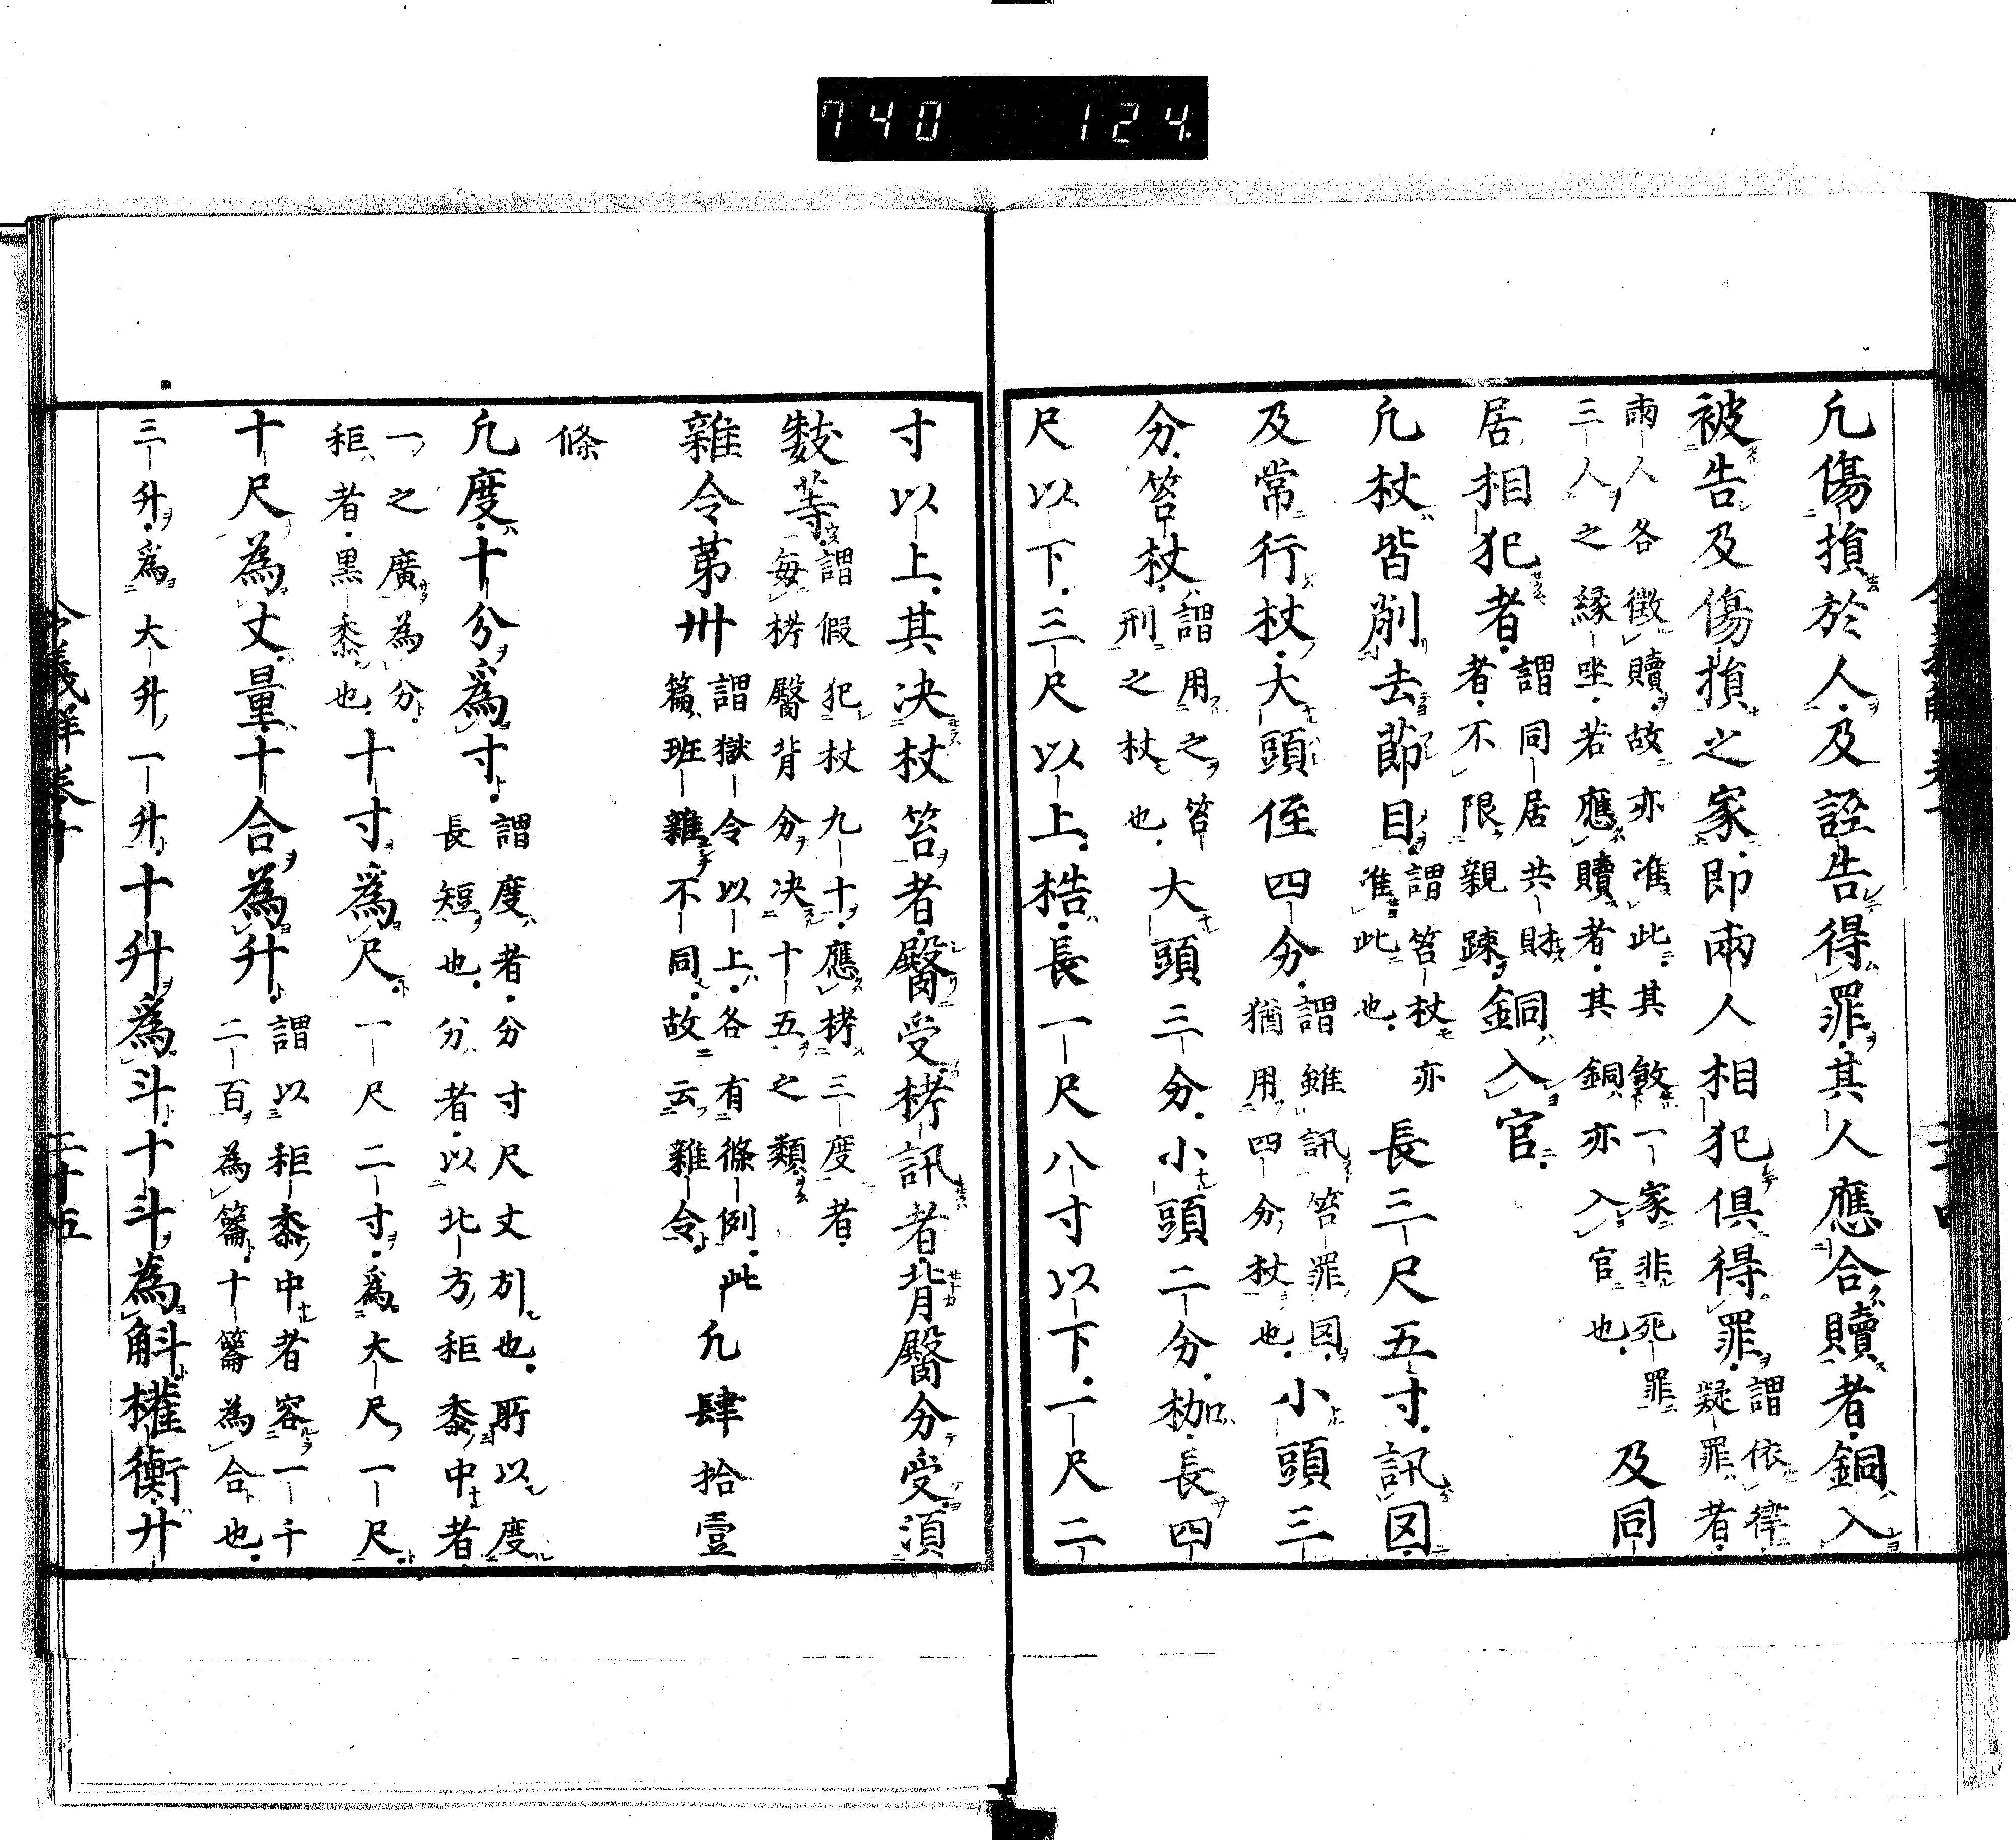 740 124
凢傷損於人及誣告得罪其人應合贖者銅入
被告及傷損之家即兩人相犯俱得罪謂依律疑罪者
兩人各徴贖故亦准此其敓一家非死罪
三人之縁坐若應贖者其銅亦入官也及同
居相犯者謂同居共財者不限親踈銅入官
凢杖皆削去莭目謂笞杖亦准此也長三尺五寸訊囚
及常行杖大頭徑四分謂雖訊笞罪囚猶用四分杖也小頭三
分笞杖謂用之笞刑之杖也大頭三分小頭二分枷長四
尺以下三尺以上梏長一尺八寸以下一尺二
寸以上其决杖笞者臀受栲訊者背臀分受須
數等謂假犯杖九十應栲三度者
毎栲臀背分决十五之類
雜令第卅謂獄令以上各有條例此
篇班雜不同故云雜令凢肆拾壹
條
凢度十分爲寸謂度者分寸尺丈引也所以度
長短也分者以北方秬黍中者
一之廣為分
秬者黒黍也十寸爲尺一尺二寸爲大尺一尺
十尺為丈量十合為升謂以秬黍中者容一千
二百為籥十籥為合也
三升爲大升一升十升爲斗十斗為斛權衡廾
令義解卷十 三十五